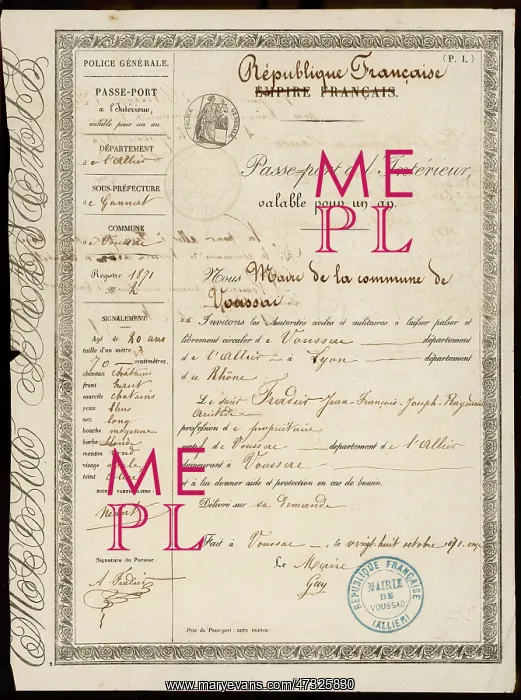 POLICE GÉNÉRALE.
PASSE-PORT
à l'Intérieur,
valable pour un an.
DÉPARTEMENT
de l'Allier
SOUS-PRÉFECTURE
de Gannat
COMMUNE
de Voussac
Registre 1871
N.° 2
SIGNALEMENT
Agé de 20 ans
taille d'un mètre
70 centimètres,
cheveux châtains
front haut
sourcils châtains
yeux bleus
nez long
bouche moyenne
barbe blonde
menton rond
visage
teint
Néant
Signature du Porteur
(P. I.)
République Française
EMPIRE FRANÇAIS.
Passe-port à l'Intérieur,
valable pour un an.
Nous Maire de la commune de
Voussac
Invitons les Autorités civiles et militaires à laisser passer et
librement circuler de Voussac département
de l'Allier à Lyon département
du Rhône
Le sieur Jean-François-Joseph-
profession de propriétaire
natif de Voussac département de l'Allier
demeurant à Voussac
et à lui donner aide et protection en cas de besoin.
Délivré sur sa demande
Fait à Voussac, le vingt huit octobre 1871
Le Maire
Guy
RÉPUBLIQUE FRANÇAISE
MAIRIE
DE
VOUSSAC
(ALLIER)
Prix du Passe-port : DEUX FRANCS.
ME
PL
ME
PL
www.maryevans.com/47325890